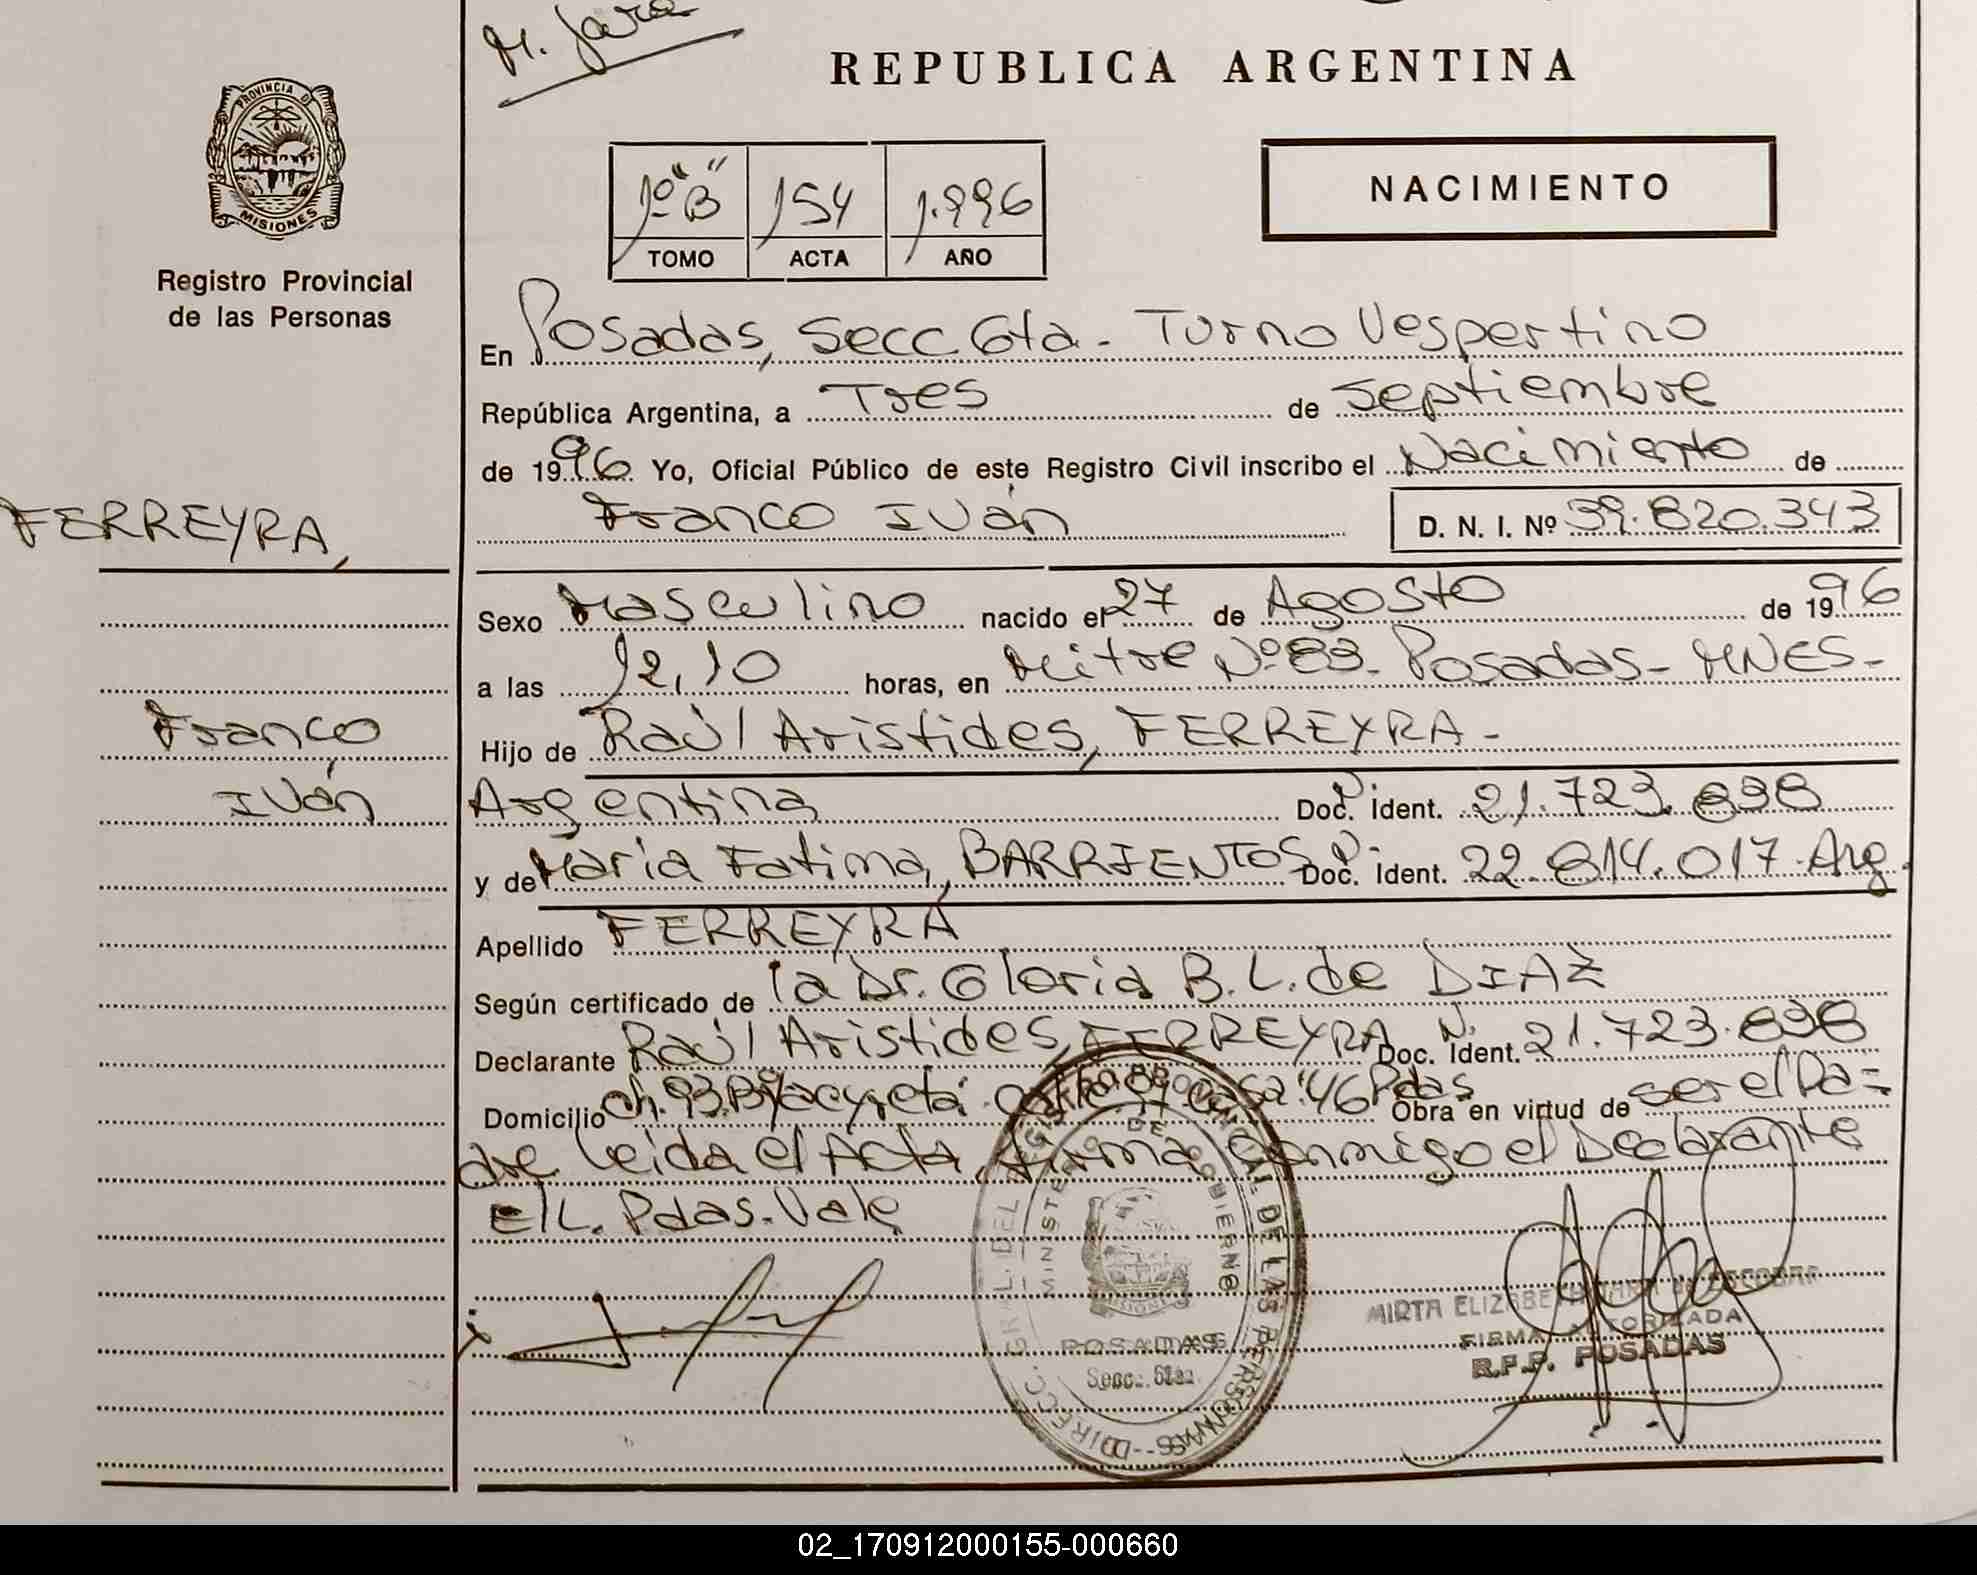 M. Jara
REPUBLICA ARGENTINA
PROVINCIA DE
MISIONES
Registro Provincial
de las Personas
1º "B" 154 1.996
TOMO ACTA AÑO
NACIMIENTO
En Posadas, Secc 6ta - Turno Vespertino
República Argentina, a Tres de Septiembre
de 1996 Yo, Oficial Público de este Registro Civil inscribo el Nacimiento de
Franco Iván D. N. I. Nº 39.820.343
FERREYRA,
Franco
Iván
Sexo Masculino nacido el 27 de Agosto de 1996
a las 12,10 horas, en Mitre Nº 83 - Posadas - MNES -
Hijo de Raúl Aristides, FERREYRA -
Argentina Doc. Ident. 21.723.898
y de Maria Fatima, BARRIENTOS Doc. Ident. 22.814.017 - Arg.
Apellido FERREYRA
Según certificado de la Dr. Gloria B. L. de DIAZ
Declarante Raúl Aristides, FERREYRA Doc. Ident. 21.723.898
Domicilio Ch. 93. Bº Yacyretá casa 46 Pdas Obra en virtud de ser el Pa=
dre Leida el Acta, firma conmigo el Declarante
E/L. Pdas. Vale
DIRECC. GRAL. DEL REGISTRO PROVINCIAL DE LAS PERSONAS
MINISTERIO DE GOBIERNO
POSADAS
Secc. 6ta.
MIRTA ELIZABETH JARA de ESCOBAR
FIRMA AUTORIZADA
R.P.P. POSADAS
02_170912000155-000660